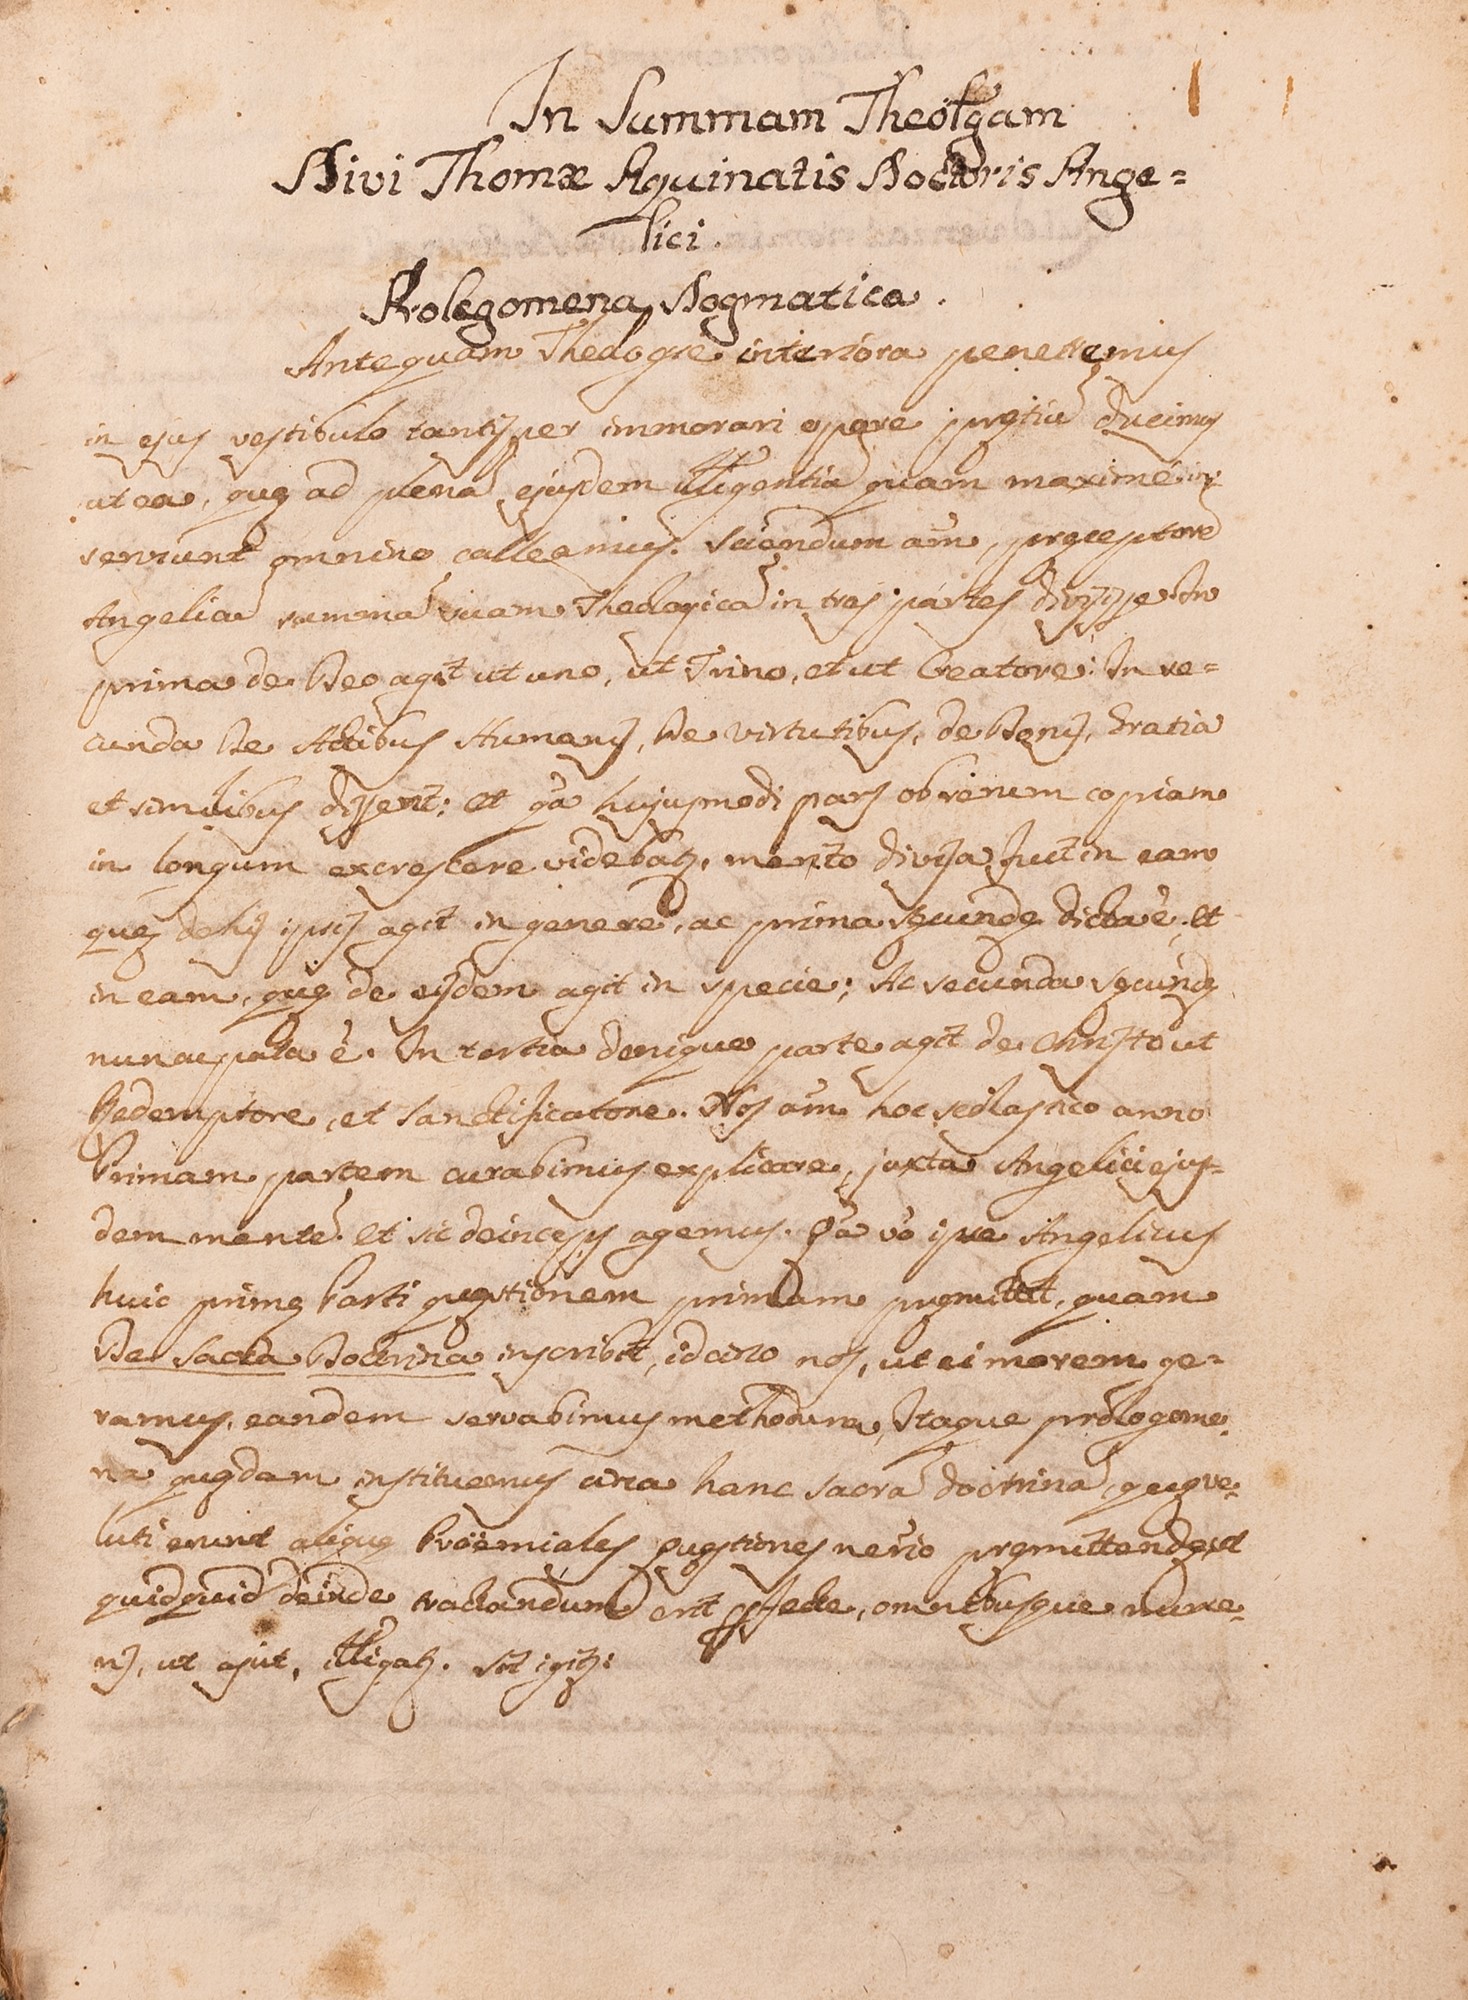 In Summam Theolgam
Divi Thomæ Aquinatis Doctoris Ange=
lici.
Prolegomena Dogmatica.
Antequam Theologię interiora penetremus
in ejus vestibulo tantisper immorari operę prętiũ ducimus
ut ea, quę ad plenã ejusdem ĩtĩligentiã quam maximè in-
serviunt omnino calleamus. Sciendum aũm, pręceptorẽ
Angelicũ summã suam Theologicã in tres partes divisisse. In
prima de Deo agit ut uno, ut Trino, et ut Creatore: In se=
cunda De Actibus Humanis, De virtutibus, de Donis, Gratia
et similibus disserit: et qa hujusmodi pars ob rerum copiam
in longum excrescere videbatr, merito divisa fuit in eam
quę de his ipsis agit in genere, ac prima sęcundę dicta ẽ. Et
in eam, quę de eisdem agit in specie; Ac secunda sęcundę
nuncupata ẽ. In tertia denique parte agit de Christo ut
Redemptore, et Sanctificatore. Nos aũm hoc scolastico anno
Primam partem curabimus explicare, juxta Angelici ejus=
dem mentẽ. et sic deinceps agemus. Qa vo ipse Angelicus
huic primę Parti quęstionem primam pręmittit, quam
De Sacra Doctrina inscribit, idcirco nos, ut ei morem ge=
ramus, eandem servabimus methodum, Itaque prolegome=
na quędam instituemus circa hanc sacrã doctrinã, quę ve=
luti erunt aliquę Proëmiales Quęstiones nerio pręmittendę, ut
quidquid deinde tractandum erit pfecte, omnibusque nume=
ris, ut ajut, ĩtĩligatr. Sit igitr: